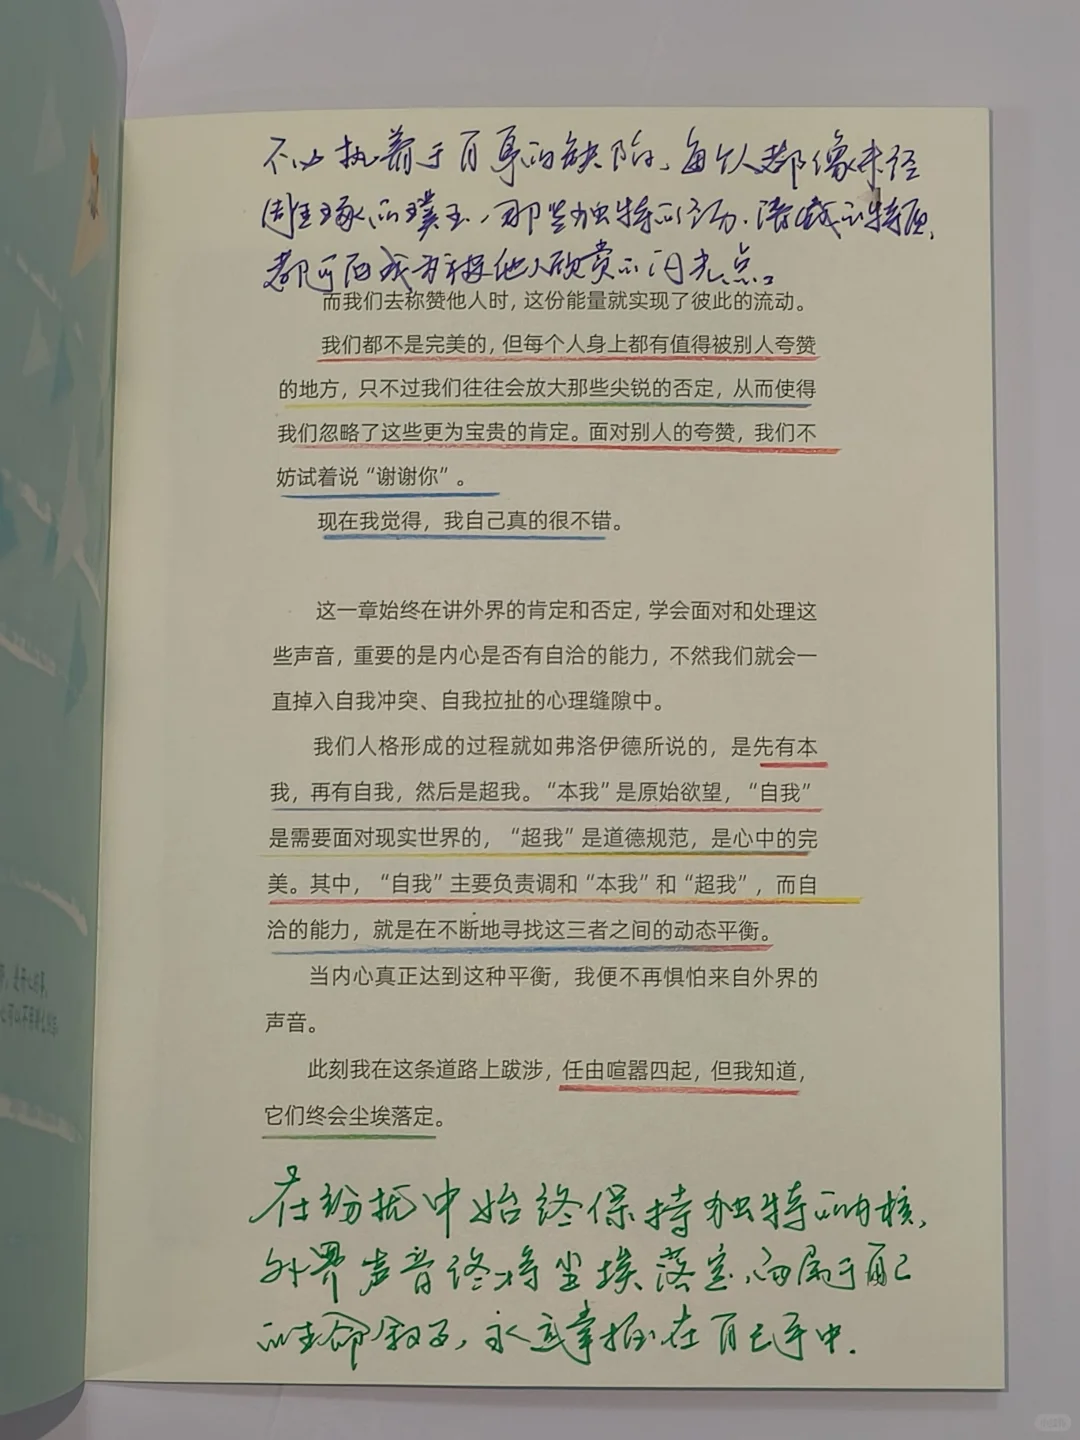 不必执着于自身的缺陷，每个人都像未经
周琢的璞玉，那些独特的经历、潜藏的特质，
都可西成为被他人欣赏的闪光点。
而我们去称赞他人时，这份能量就实现了彼此的流动。
我们都不是完美的，但每个人身上都有值得被别人夸赞
的地方，只不过我们往往会放大那些尖锐的否定，从而使得
我们忽略了这些更为宝贵的肯定。面对别人的夸赞，我们不
妨试着说“谢谢你”。
现在我觉得，我自己真的很不错。
这一章始终在讲外界的肯定和否定，学会面对和处理这
些声音，重要的是内心是否有自洽的能力，不然我们就会一
直掉入自我冲突、自我拉扯的心理缝隙中。
我们人格形成的过程就如弗洛伊德所说的，是先有本
我，再有自我，然后是超我。“本我”是原始欲望，“自我”
是需要面对现实世界的，“超我”是道德规范，是心中的完
美。其中，“自我”主要负责调和“本我”和“超我”，而自
洽的能力，就是在不断地寻找这三者之间的动态平衡。
当内心真正达到这种平衡，我便不再惧怕来自外界的
声音。
此刻我在这条道路上跋涉，任由喧嚣四起，但我知道，
它们终会尘埃落定。
在纷扰中始终保持独特的内核，
外界声音终将尘埃落定，而属于自己
的生命叙事，永远掌握在自己手中.